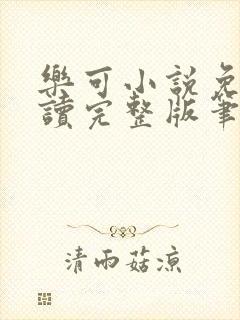 樂可小說免
讀完整版筆
清雨菇涼